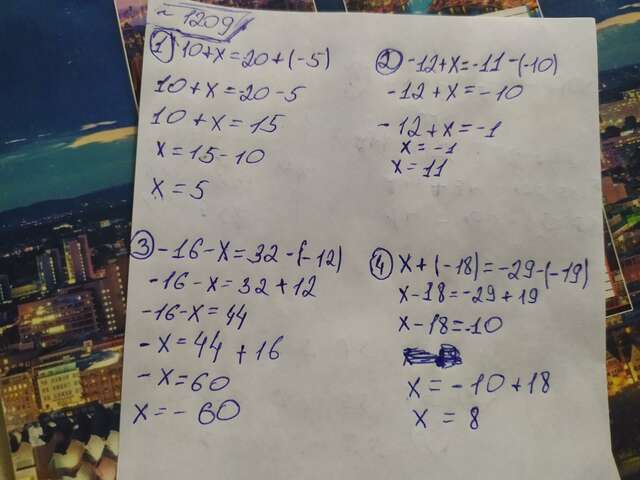 ~ 1209
1) 10+x=20+(-5)
10+x=20-5
10+x=15
x=15-10
x=5
2) -12+x=-11-(-10)
-12+x=-10
-12+x=-1
x=-1
x=11
3) -16-x=32-(-12)
-16-x=32+12
-16-x=44
-x=44+16
-x=60
x=-60
4) x+(-18)=-29-(-19)
x-18=-29+19
x-18=-10
x=-10+18
x=8